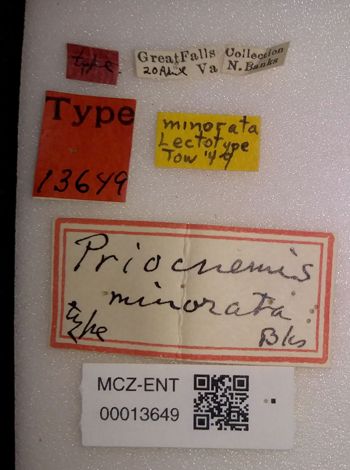 type
Great Falls
Va
Collection
N. Banks
Type
13649
minorata
Lectotype
Tow '49
Priocnemis
minorata
type
Bks
MCZ-ENT
00013649